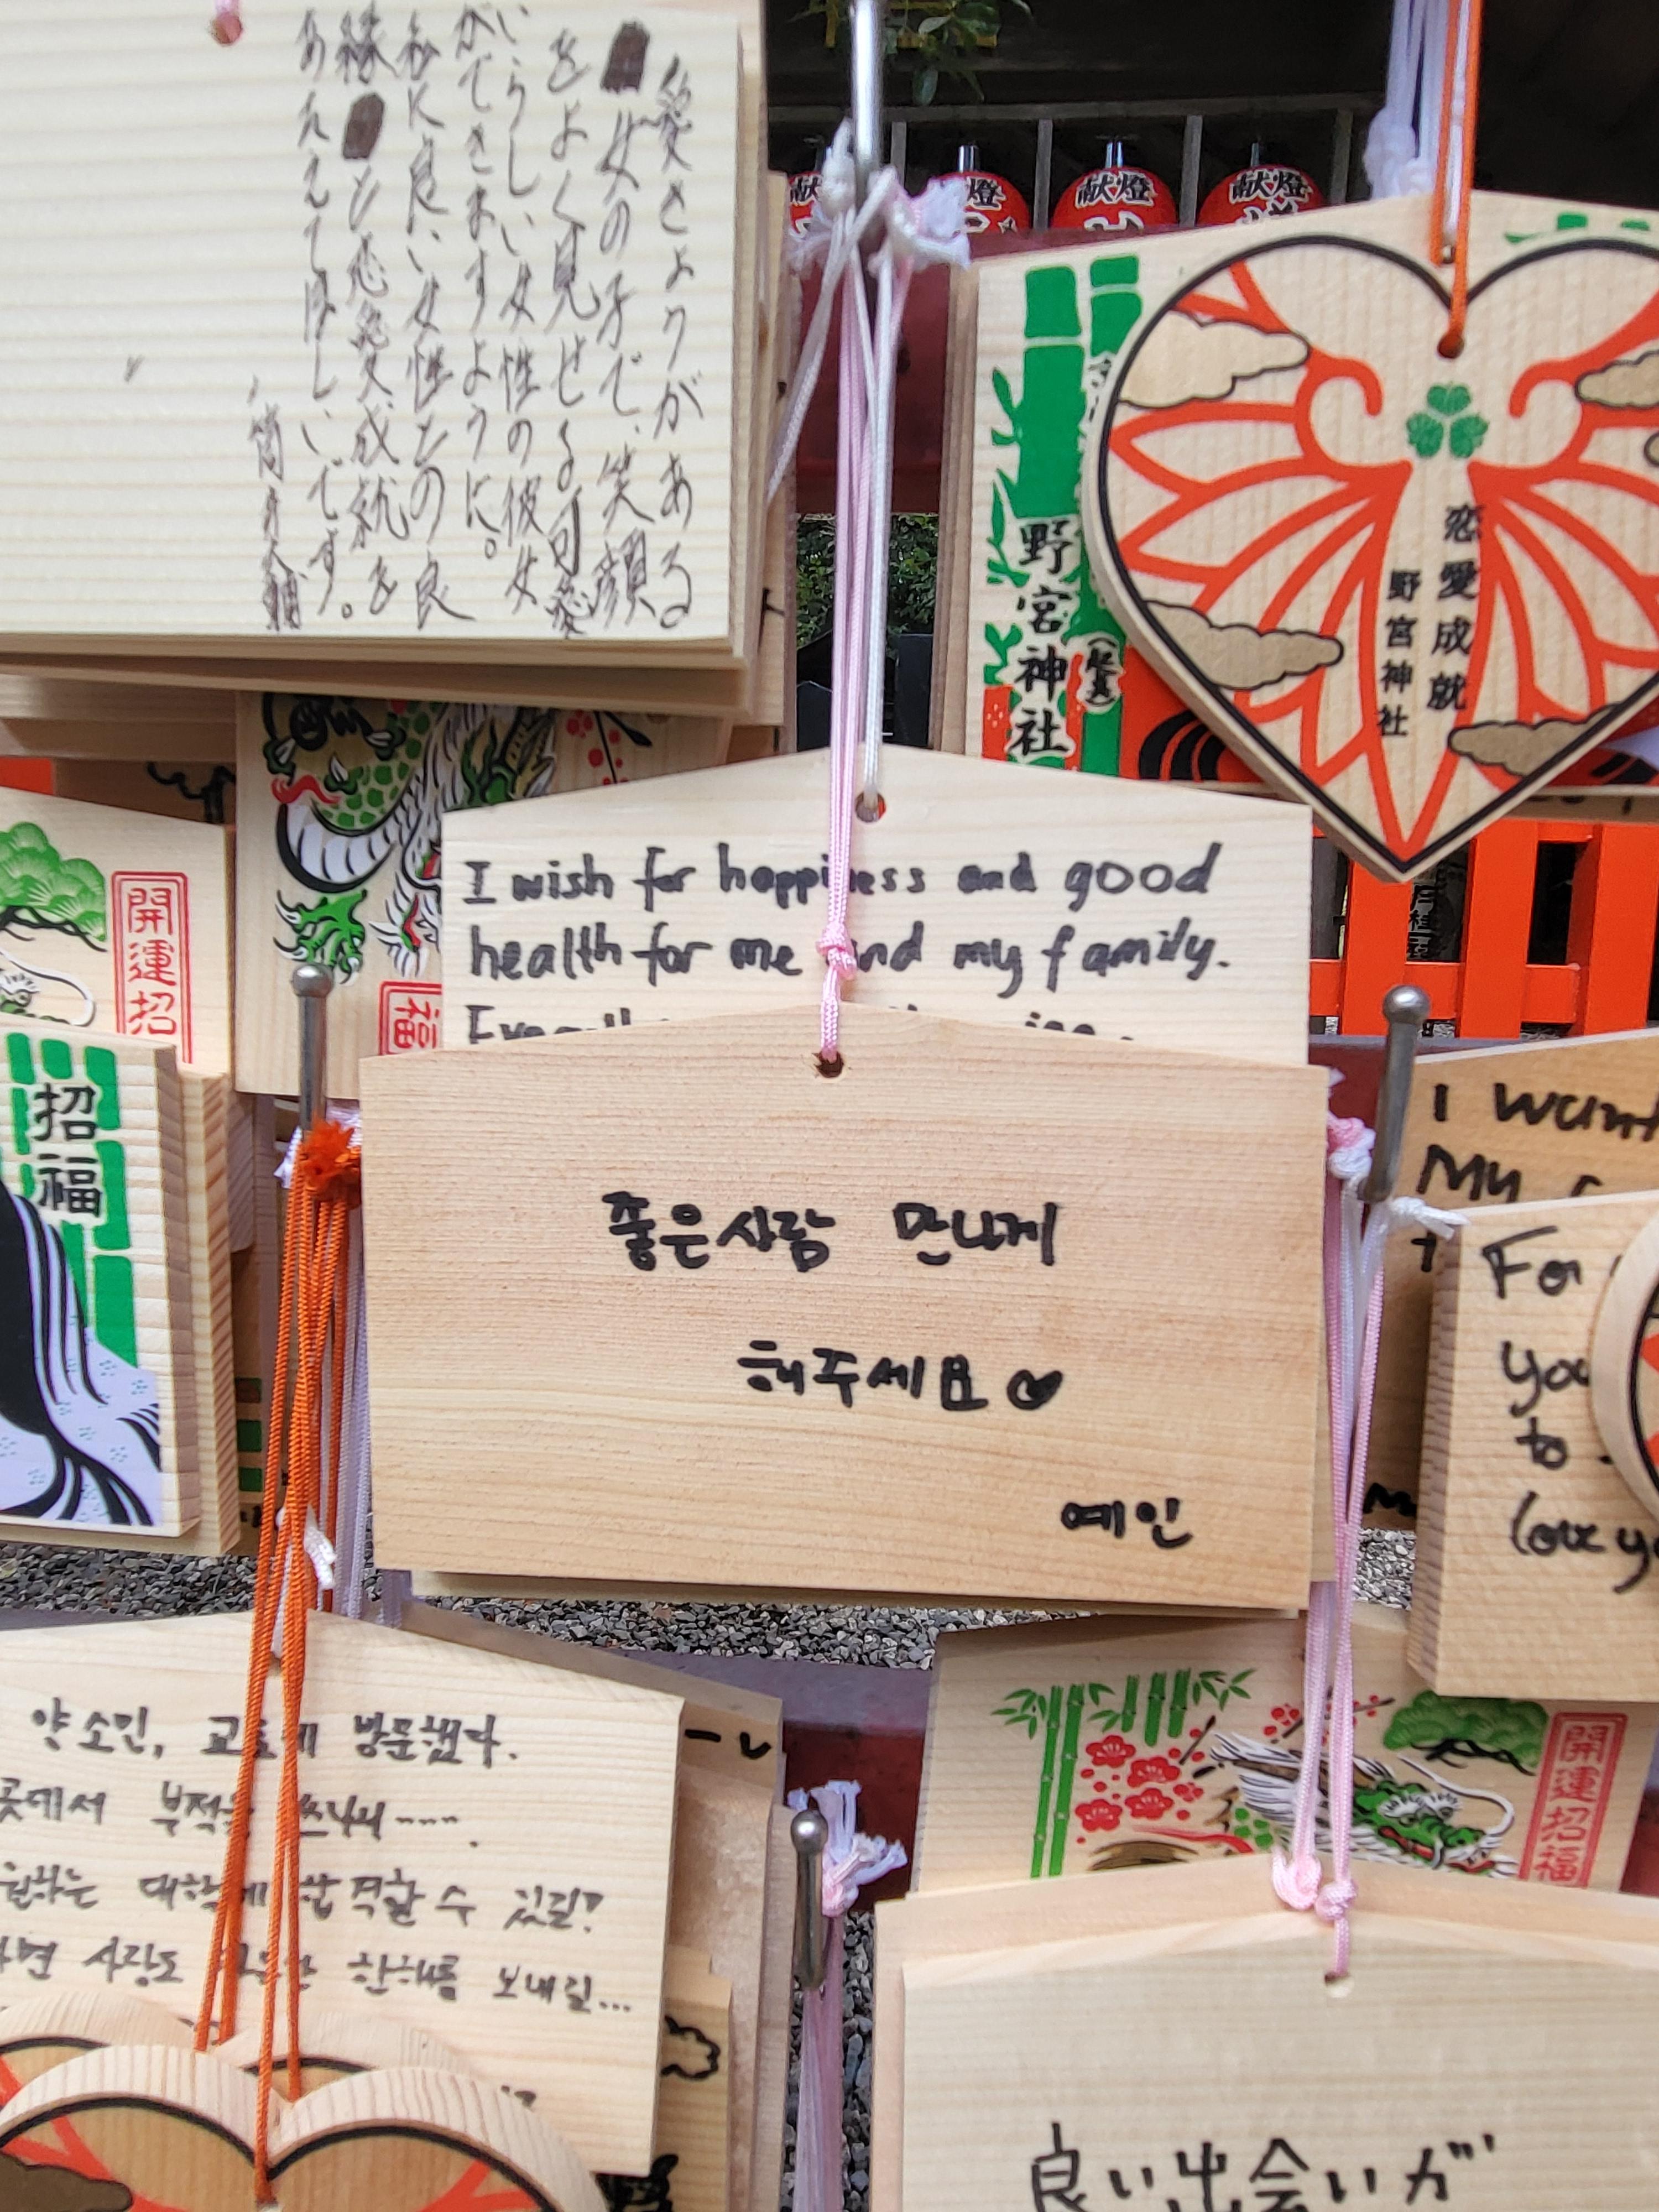 愛きょうがある
女の子で、笑顔
をよく見せる可愛
いらしい女性の彼女
ができますように。
私に良い女性との良
縁と恋愛成就を
あたえてほしいです。
献燈
献燈
献燈
野宮神社
恋愛成就
野宮神社
I wish for happiness and good
health for me and my family.
開運招
福
招福
좋은사람 만나게
해주세요♥
예인
I want
My
For
you
to
love yo
양소민, 교토에 방문했다.
곳에서 부적을
원하는 대학에 합격할 수 있길!
사랑도 한해를 보내길...
開運招福
良い出会いが